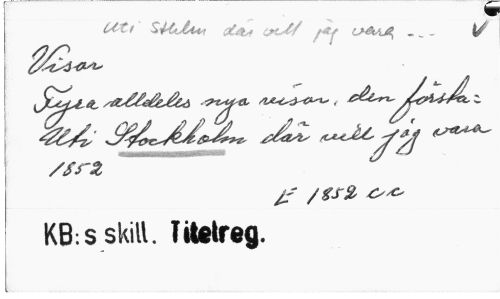 Uti Sthlm där vill jag vara ...
Visor
Fyra alldeles nya visor, den första:
Uti Stockholm där vill jag vara
1852
E 1852 c c
KB:s skill. Titelreg.